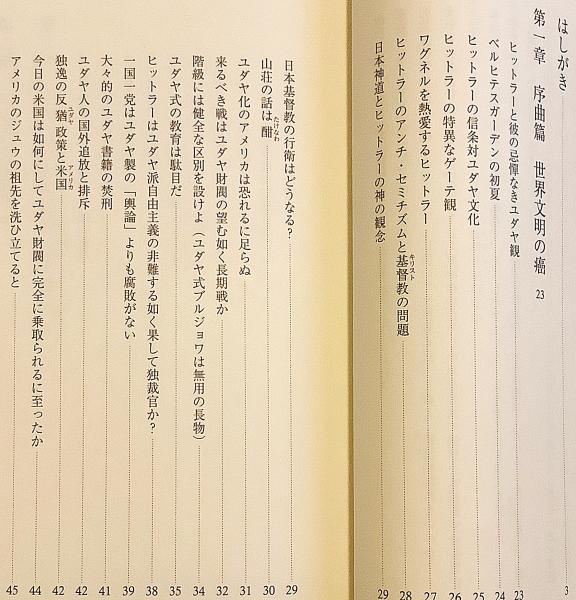 はしがき 3
第一章 序曲篇 世界文明の癌 23
ヒットラーと彼の忌憚なきユダヤ観 23
ベルヒテスガーデンの初夏 24
ヒットラーの信条対ユダヤ文化 25
ヒットラーの特異なゲーテ観 26
ワグネルを熱愛するヒットラー 27
ヒットラーのアンチ・セミチズムと基督教の問題 28
キリスト
日本神道とヒットラーの神の観念 29
日本基督教の行衛はどうなる? 29
山荘の話は酣 30
たけなわ
ユダヤ化のアメリカは恐れるに足らぬ 31
来るべき戦はユダヤ財閥の望む如く長期戦か 32
階級には健全な区別を設けよ(ユダヤ式ブルジョワは無用の長物) 34
ユダヤ式の教育は駄目だ 35
ヒットラーはユダヤ派自由主義の非難する如く果して独裁官か? 38
一国一党はユダヤ製の「輿論」よりも腐敗がない 39
大々的のユダヤ書籍の焚刑 41
ユダヤ人の国外追放と排斥 42
独逸の反猶政策と米国 42
ユダヤ
アメリカ
今日の米国は如何にしてユダヤ財閥に完全に乗取られるに至ったか 44
アメリカのジュウの祖先を洗ひ立てると 45